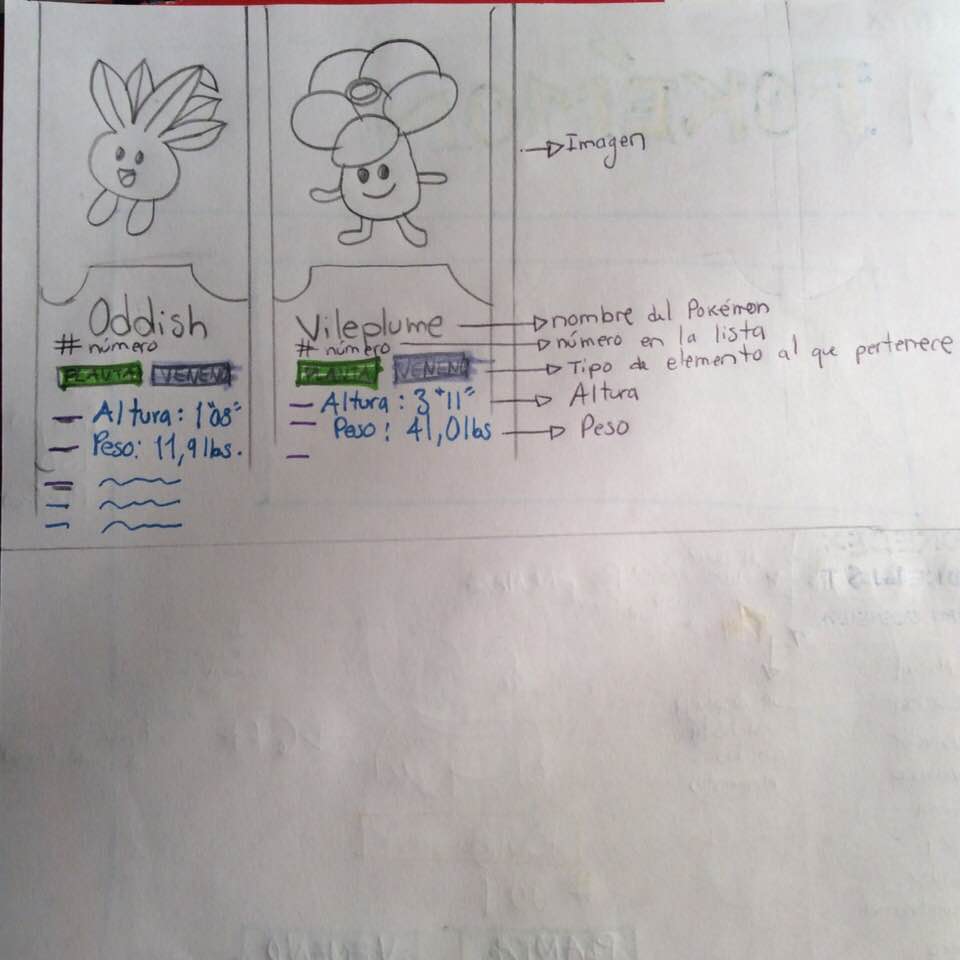 Imagen
Oddish
# número
PLANTA VENENO
Altura: 1"08"
Peso: 11,9 lbs.
Vileplume
# número
PLANTA VENENO
Altura: 3"11"
Peso: 41,0 lbs
nombre del Pokémon
número en la lista
Tipo de elemento al que pertenece
Altura
Peso